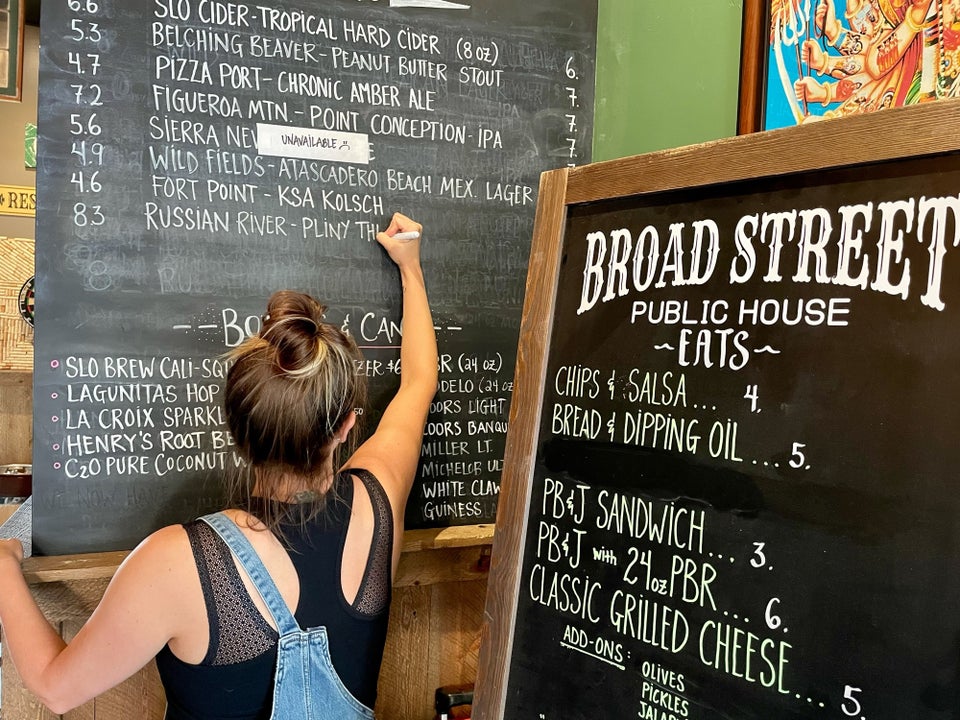 6.6 SLO CIDER-TROPICAL HARD CIDER (8 OZ)
5.3 BELCHING BEAVER-PEANUT BUTTER STOUT 6.
4.7 PIZZA PORT-CHRONIC AMBER ALE 7.
7.2 FIGUEROA MTN.-POINT CONCEPTION-IPA 7.
5.6 SIERRA NEV UNAVAILABLE 7.
4.9 WILD FIELDS-ATASCADERO BEACH MEX. LAGER
4.6 FORT POINT-KSA KOLSCH
8.3 RUSSIAN RIVER-PLINY TH
RES
& CAN
SLO BREW CALI-SQ
LAGUNITAS HOP
LA CROIX SPARKL
HENRY'S ROOT BE
C2O PURE COCONUT W
BR (24 OZ)
ODELO (24 OZ
OORS LIGHT
COORS BANQU
MILLER LT.
MICHELOB UL
WHITE CLAW
GUINESS
BROAD STREET
PUBLIC HOUSE
~EATS~
CHIPS & SALSA... 4.
BREAD & DIPPING OIL ... 5.
PB&J SANDWICH... 3.
PB&J with 24oz PBR... 6.
CLASSIC GRILLED CHEESE... 5.
ADD-ONS:
OLIVES
PICKLES
JALAP